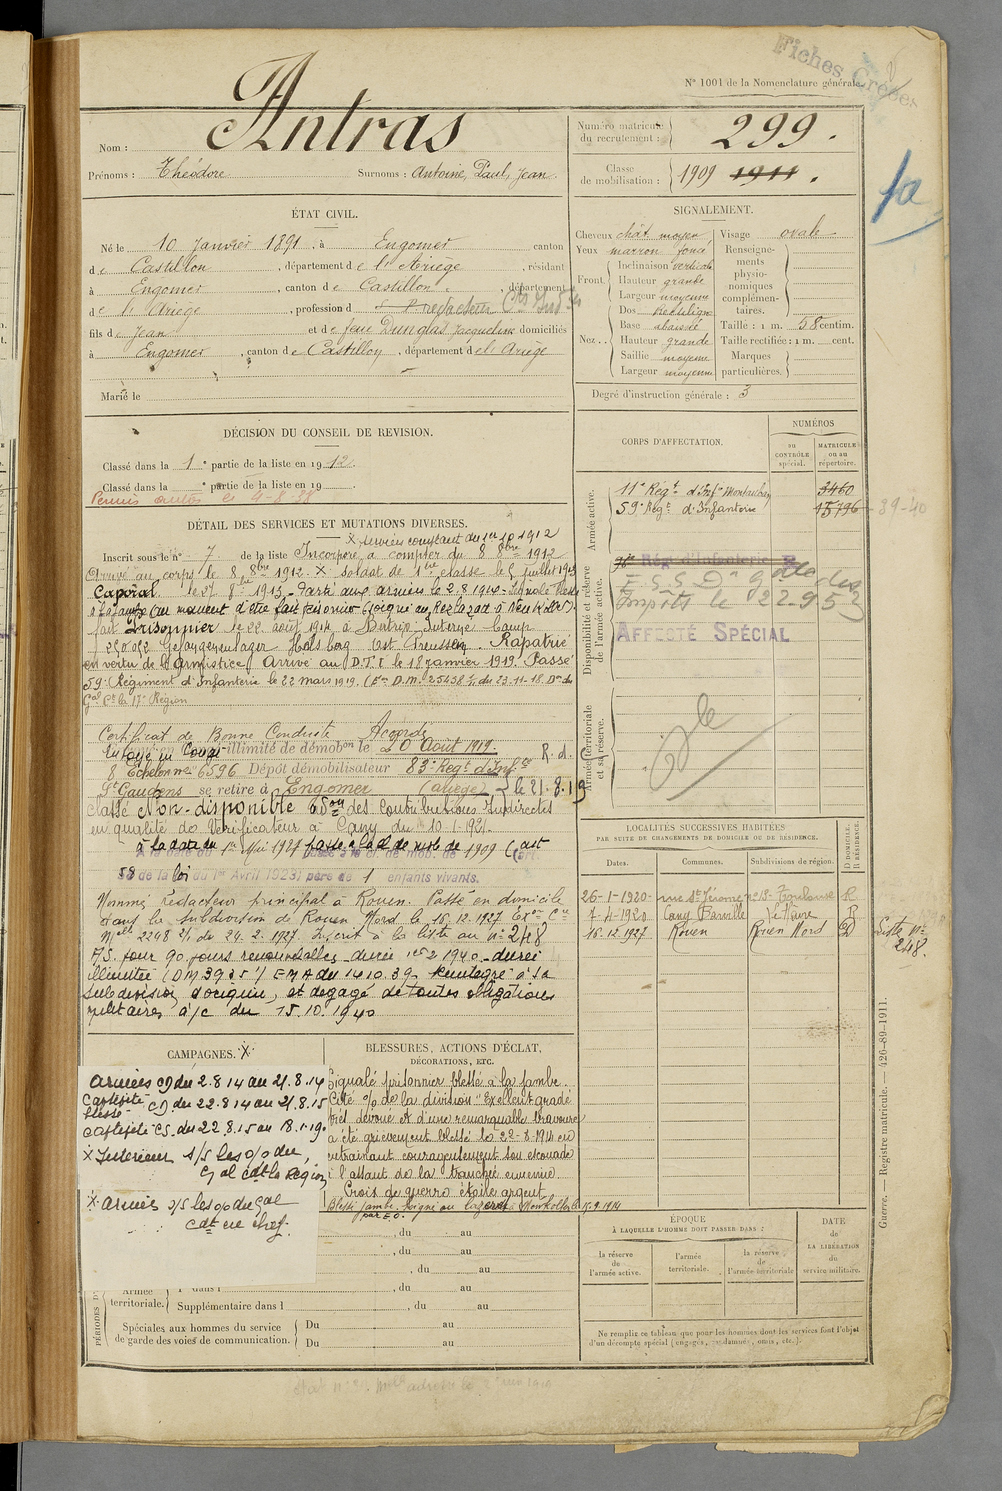 Fiches Créées
N° 1001 de la Nomenclature générale.
Nom : Antras
Prénoms : Théodore Surnoms : Antoine, Paul, Jean
Numéro matricule du recrutement : 299.
Classe de mobilisation : 1909 1911.
ÉTAT CIVIL.
Né le 10 Janvier 1891, à Engomer canton
de Castillon, département de l'Ariège, résidant
à Engomer, canton de Castillon, département
de l'Ariège, profession de rédacteur
fils de Jean et de feue Dunglas Jacqueline domiciliés
à Engomer, canton de Castillon, département de l'Ariège
Marié le
SIGNALEMENT.
Cheveux chât. moyen
Yeux marron foncé
Front.
Inclinaison verticale
Hauteur grande
Largeur moyenne
Nez..
Dos Rectiligne
Base abaissée
Hauteur grande
Saillie moyenne
Largeur moyenne
Visage ovale
Renseignements physionomiques complémentaires.
Taille : 1 m. 58 centim.
Taille rectifiée : 1 m. cent.
Marques particulières.
Degré d'instruction générale : 3
DÉCISION DU CONSEIL DE REVISION.
Classé dans la 1e partie de la liste en 1912.
Classé dans la e partie de la liste en 19
Permis autos le 4-8-28
DÉTAIL DES SERVICES ET MUTATIONS DIVERSES.
services comptant du 1er 10 1912
Inscrit sous le n° 7 de la liste Incorporé à compter du 8 8bre 1912
Arrivé au corps le 8 8bre 1912. X Soldat de 1ère classe le 5 juillet 1913
Caporal le 8bre 1913. Parti aux armées le 2.8.1914. Signalé blessé
à la jambe au moment d'être fait prisonnier
fait Prisonnier le 22 août 1914 à Bertrix Interné Camp
Ost Preussen. Rapatrié
en vertu de l'Armistice. Arrivé au D.T.I le 18 janvier 1919. Passé
59e Régiment d'Infanterie le 22 mars 1919. (Ext. D.M. 25438 du 23-11-18. De du
Gal Ct la 17e Région
Certificat de Bonne Conduite Accordé
Envoyé en Congé illimité de démobon le 20 Août 1919.
8e Échelon no 6596 Dépôt démobilisateur 83e Regt d'Infie
R. d.
St Gaudens se retire à Engomer (Ariège) le 21.8.19
Classé Non-disponible des Contributions Indirectes
en qualité de Vérificateur à Cany du 10-1-1921.
à la date du 1er Mai 1927 passe à la cl. de mob. de 1909 (art.
58 de la loi du 1er Avril 1923) père de 1 enfants vivants.
Nommé rédacteur principal à Rouen. Passé en domicile
dans la subdivision de Rouen Nord le 16.12.1927
2248 2/1 du 24.2.1927. Inscrit à la liste au n° 248
A/S. pour 90 jours renouvelables
illimitée E M A du 14.10.39. Réintégré à sa
subdivision d'origine, et dégagé de toutes obligations
militaires à/c du 15.10.1940
CORPS D'AFFECTATION.
NUMÉROS
au CONTRÔLE spécial.
MATRICULE ou au répertoire.
Armée active.
11e Régt. d'Infie Montauban 3460
59e Régt. d'Infanterie 15796
39-40
Disponibilité et réserve de l'armée active.
Rég. d'Infanterie
Impôts le 22.9.52
AFFECTÉ SPÉCIAL
Armée territoriale et sa réserve.
LOCALITÉS SUCCESSIVES HABITÉES
PAR SUITE DE CHANGEMENTS DE DOMICILE OU DE RÉSIDENCE.
Dates. Communes. Subdivisions de région. D. DOMICILE. R. RÉSIDENCE.
26-1-1920 rue St Jérome no 13 - Toulouse R
7-4-1920 Cany Barville Le Havre R
16.12.1927 Rouen Rouen Nord D
Liste no 248.
CAMPAGNES. X
Armées C/ du 2.8.14 au 21.8.14
Captivité blessé C/ du 22.8.14 au 21.8.15
captivité CS. du 22.8.15 au 18.1.19
X Intérieur s/s les o/ du
Gal cdt la Région
X Armées s/s les o/ du Gal
cdt en chef.
BLESSURES, ACTIONS D'ÉCLAT,
DÉCORATIONS, ETC.
Signalé prisonnier blessé à la jambe.
Cité o/ de la division "Excellent gradé
très dévoué et d'une remarquable bravoure
a été grièvement blessé le 22-8-1914 en
entraînant courageusement son escouade
à l'assaut de la tranchée ennemie
Croix de guerre étoile argent
Blessé jambe. Soigné au lazaret
, du au
, du au
, du au
Armée territoriale.
, du au
Supplémentaire dans l , du au
Spéciales aux hommes du service
de garde des voies de communication.
Du au
Du au
ÉPOQUE
À LAQUELLE L'HOMME DOIT PASSER DANS :
la réserve de l'armée active.
l'armée territoriale.
la réserve de l'armée territoriale
DATE DE LA LIBÉRATION du service militaire.
Ne remplir ce tableau que pour les hommes dont les services font l'objet
d'un décompte spécial (engagés, condamnés, omis, etc.).
Guerre. — Registre matricule. — 426-89-1911.